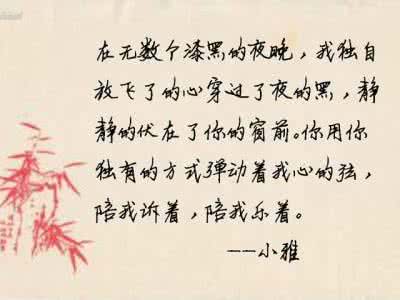 在无数个漆黑的夜晚，我独自
放飞了的心穿过了夜的黑，静
静的伏在了你的窗前。你用你
独有的方式弹动着我心的弦，
陪我诉着，陪我乐着。
---小雅